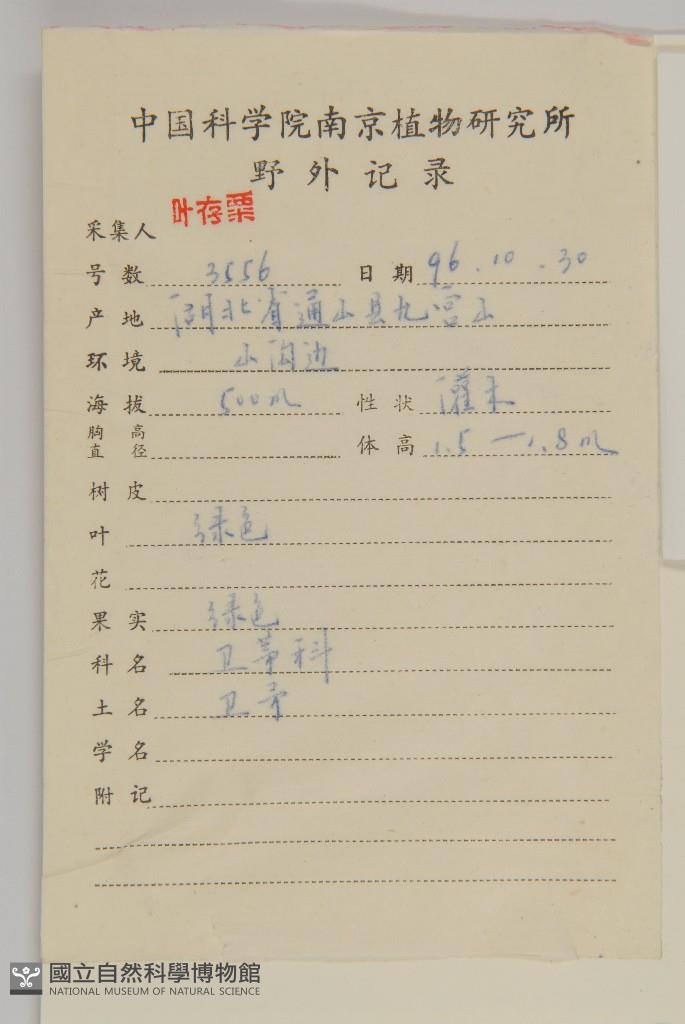 中国科学院南京植物研究所
野外记录
采集人 叶存粟
号数 3556 日期 96.10.30
产地 湖北省通山县九宫山
环境 山沟边
海拔 500m 性状 灌木
胸高直径 体高 1.5—1.8m
树皮
叶 绿色
花
果实 绿色
科名 卫茅科
土名 卫矛
学名
附记
國立自然科學博物館
NATIONAL MUSEUM OF NATURAL SCIENCE